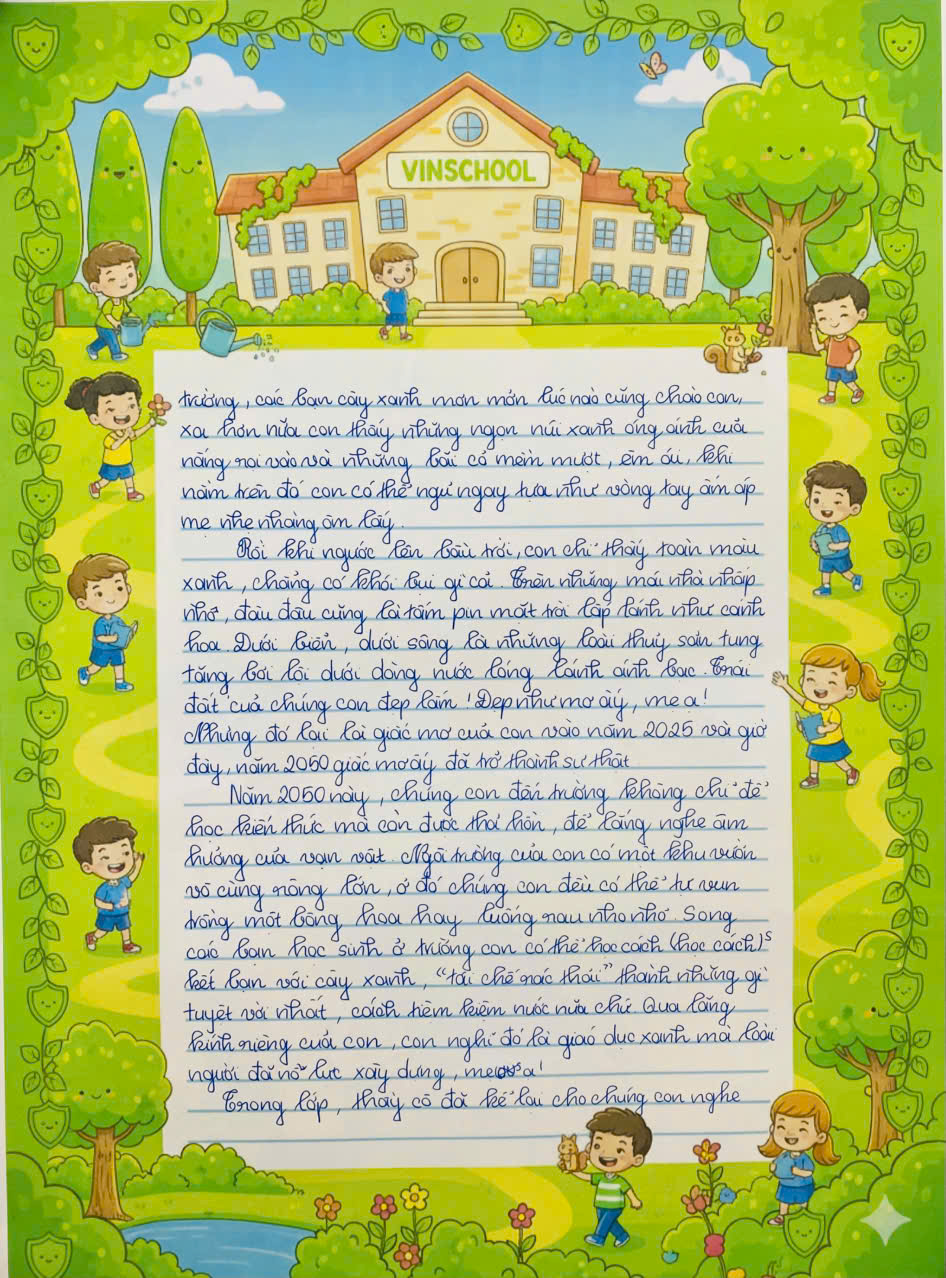 VINSCHOOL
trường, các bạn cây xanh mơn mởn lúc nào cũng chào con,
xa hơn nữa con thấy những ngọn núi xanh óng ánh của
nắng rọi vào và những bãi cỏ mềm mượt, êm ái, khi
nằm trên đó con có thể ngủ ngay tựa như vòng tay ấm áp
mẹ nhẹ nhàng ôm lấy.
Rồi khi ngước lên bầu trời, con chỉ thấy toàn màu
xanh, chẳng có khói bụi gì cả. Trên những mái nhà nhấp
nhô, đâu đâu cũng là tấm pin mặt trời lấp lánh như cánh
hoa. Dưới biển, dưới sông là những loài thuỷ sản tung
tăng bơi lội dưới dòng nước lóng lánh ánh bạc. Trái
đất của chúng con đẹp lắm! Đẹp như mơ ấy, mẹ ạ!
Nhưng đó lại là giấc mơ của con vào năm 2025 và giờ
đây, năm 2050 giấc mơ ấy đã trở thành sự thật
Năm 2050 này, chúng con đến trường không chỉ để
học kiến thức mà còn được thả hồn, để lắng nghe âm
hưởng của vạn vật. Ngôi trường của con có một khu vườn
vô cùng rộng lớn, ở đó chúng con đều có thể tự vun
trồng một bông hoa hay luống rau nho nhỏ. Song
các bạn học sinh ở trường con có thể học cách (học cách)s
kết bạn với cây xanh, "tái chế rác thải" thành những gì
tuyệt vời nhất, cách tiềm kiệm nước nữa chứ. Qua lăng
kính riêng của con, con nghĩ đó là giáo dục xanh mà loài
người đã nỗ lực xây dựng, mẹ ạ!
Trong lớp, thầy cô đã kể lại cho chúng con nghe